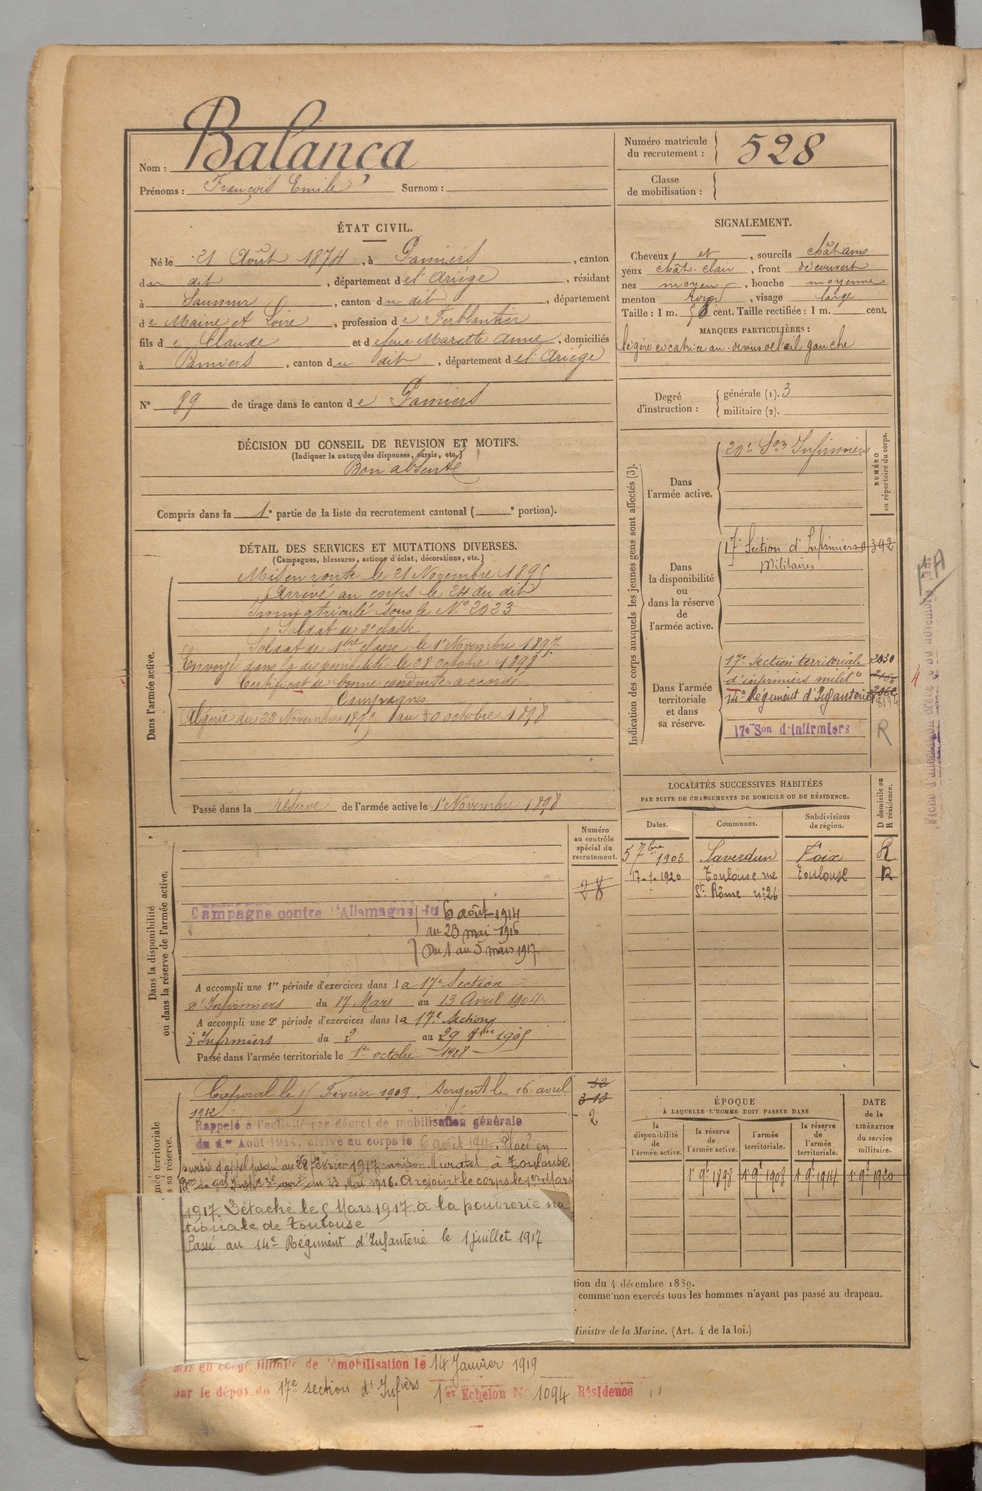 Nom : Balança
Prénoms : François Emile Surnom :
Numéro matricule du recrutement : 528
Classe de mobilisation :
ÉTAT CIVIL.
Né le 21 Août 1874, à Pamiers, canton
du dit, département de l'Ariège, résidant
à Saumur, canton du dit, département
de Maine et Loire, profession de Ferblantier
fils de Claude et de feue Marette Anne, domiciliés
à Pamiers, canton du dit, département de l'Ariège
N° 89 de tirage dans le canton de Pamiers
SIGNALEMENT.
Cheveux et, sourcils châtains
yeux chât. clair, front découvert
nez moyen, bouche moyenne
menton rond, visage large
Taille : 1 m. cent. Taille rectifiée : 1 m. cent.
MARQUES PARTICULIÈRES :
légère cicatrice au-dessus de l'œil gauche
Degré d'instruction : générale (1). 3
militaire (2).
DÉCISION DU CONSEIL DE REVISION ET MOTIFS.
(Indiquer la nature des dispenses, sursis, etc.)
Bon absent
Compris dans la 1e partie de la liste du recrutement cantonal ( e portion).
DÉTAIL DES SERVICES ET MUTATIONS DIVERSES.
(Campagnes, blessures, actions d'éclat, décorations, etc.)
Dans l'armée active.
Mis en route le 21 Novembre 1895
Arrivé au corps le 24 du dit
Immatriculé sous le N° 2023
Soldat de 2e classe
Soldat de 1ère classe le 1er Novembre 1897
Envoyé dans la disponibilité le 28 octobre 1898
Certificat de bonne conduite accordé
Campagnes
Algérie du 22 Novembre 1895 au 30 octobre 1898
Passé dans la réserve de l'armée active le 1er Novembre 1898
Indication des corps auxquels les jeunes gens sont affectés (3).
NUMÉRO au répertoire du corps.
Dans l'armée active.
20e Son Infirmiers
Dans la disponibilité ou dans la réserve de l'armée active.
17e Section d'Infirmiers 342
Militaires
Dans l'armée territoriale et dans sa réserve.
17e Section territoriale 2030
d'infirmiers milit"
14e Régiment d'Infanterie
17e Son d'Infirmiers R
LOCALITÉS SUCCESSIVES HABITÉES
PAR SUITE DE CHANGEMENTS DE DOMICILE OU DE RÉSIDENCE.
Dates. Communes. Subdivisions de région. D domicile ou R résidence.
5 7bre 1903 Saverdun Foix R
17-1-1920 Toulouse rue Toulouse R
St Rôme n° 26
Numéro au contrôle spécial du recrutement.
28
Dans la disponibilité ou dans la réserve de l'armée active.
Campagne contre l'Allemagne du 6 août 1914
au 23 mai 1916
Du 1 au 5 mars 1917
A accompli une 1re période d'exercices dans la 17e Section
d'Infirmiers du 17 Mars au 13 Avril 1904
A accompli une 2e période d'exercices dans la 17e Section
d'Infirmiers du 2 au 29
Passé dans l'armée territoriale le 1er octobre 1908
Caporal le 15 Février 1909. Sergent le 16 avril
1912
Rappelé à l'activité par décret de mobilisation générale
du 1er Août 1914, arrivé au corps le 6 août 1914. Placé en
sursis d'appel jusqu'au 28 février 1917 maison Muratet à Toulouse
du 23 Mai 1916. A rejoint le corps le 1er Mars
1917. Détaché le 6 Mars 1917 à la poudrerie na
tionale de Toulouse
Passé au 14e Régiment d'Infanterie le 1 juillet 1917
32
2
ÉPOQUE
À LAQUELLE L'HOMME DOIT PASSER DANS
la disponibilité de l'armée active. la réserve de l'armée active. l'armée territoriale. la réserve de l'armée territoriale.
DATE de la LIBÉRATION du service militaire.
1er 9e 1898 1er 9e 1908 1er 9e 1914 1er 9e 1920
tion du 4 décembre 1889.
comme non exercés tous les hommes n'ayant pas passé au drapeau.
Ministre de la Marine. (Art. 4 de la loi.)
Mis en congé illimité de démobilisation le 14 Janvier 1919
par le dépôt de 17e section d'Infiers 1er Echelon N° 1094 Résidence